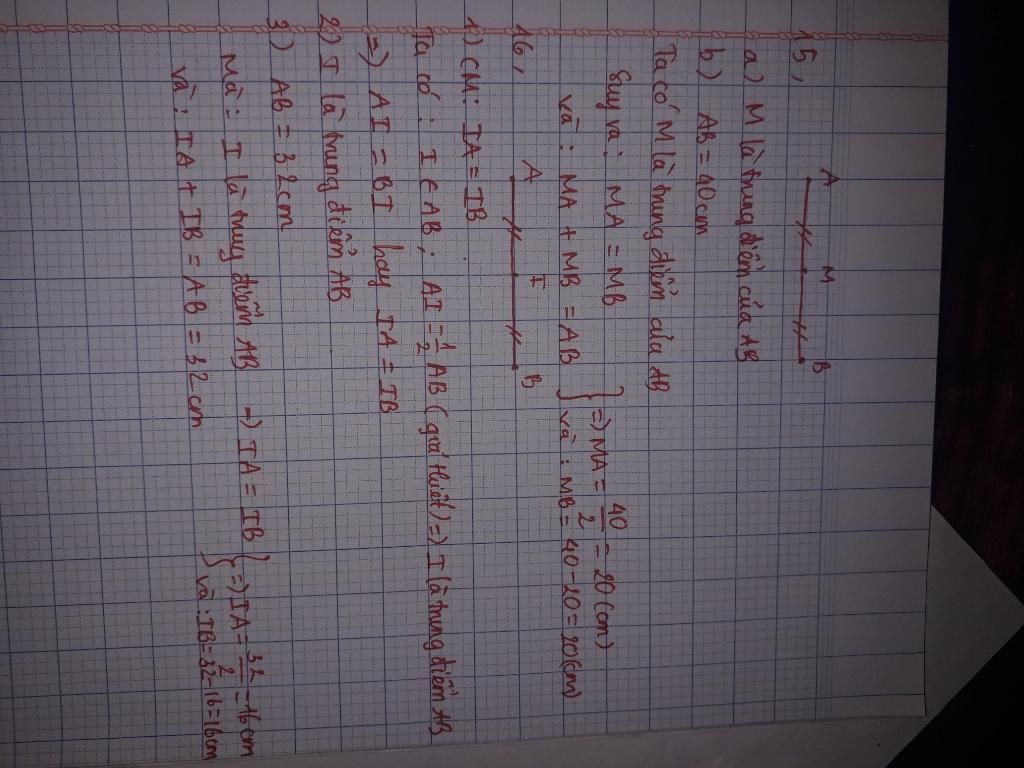 15,
A M B
a) M là trung điểm của AB
b) AB = 40cm
Ta có M là trung điểm của AB
Suy ra: MA = MB } => MA = 40/2 = 20 (cm)
và: MA + MB = AB } và: MB = 40 - 20 = 20 (cm)
16,
A I B
1) CM: IA = IB
Ta có: I ∈ AB; AI = 1/2 AB (giả thiết) => I là trung điểm AB
=) AI = BI hay IA = IB
2) I là trung điểm AB
3) AB = 32cm
Mà: I là trung điểm AB => IA = IB } => IA = 32/2 = 16 cm
và: IA + IB = AB = 32cm } và: IB = 32 - 16 = 16cm